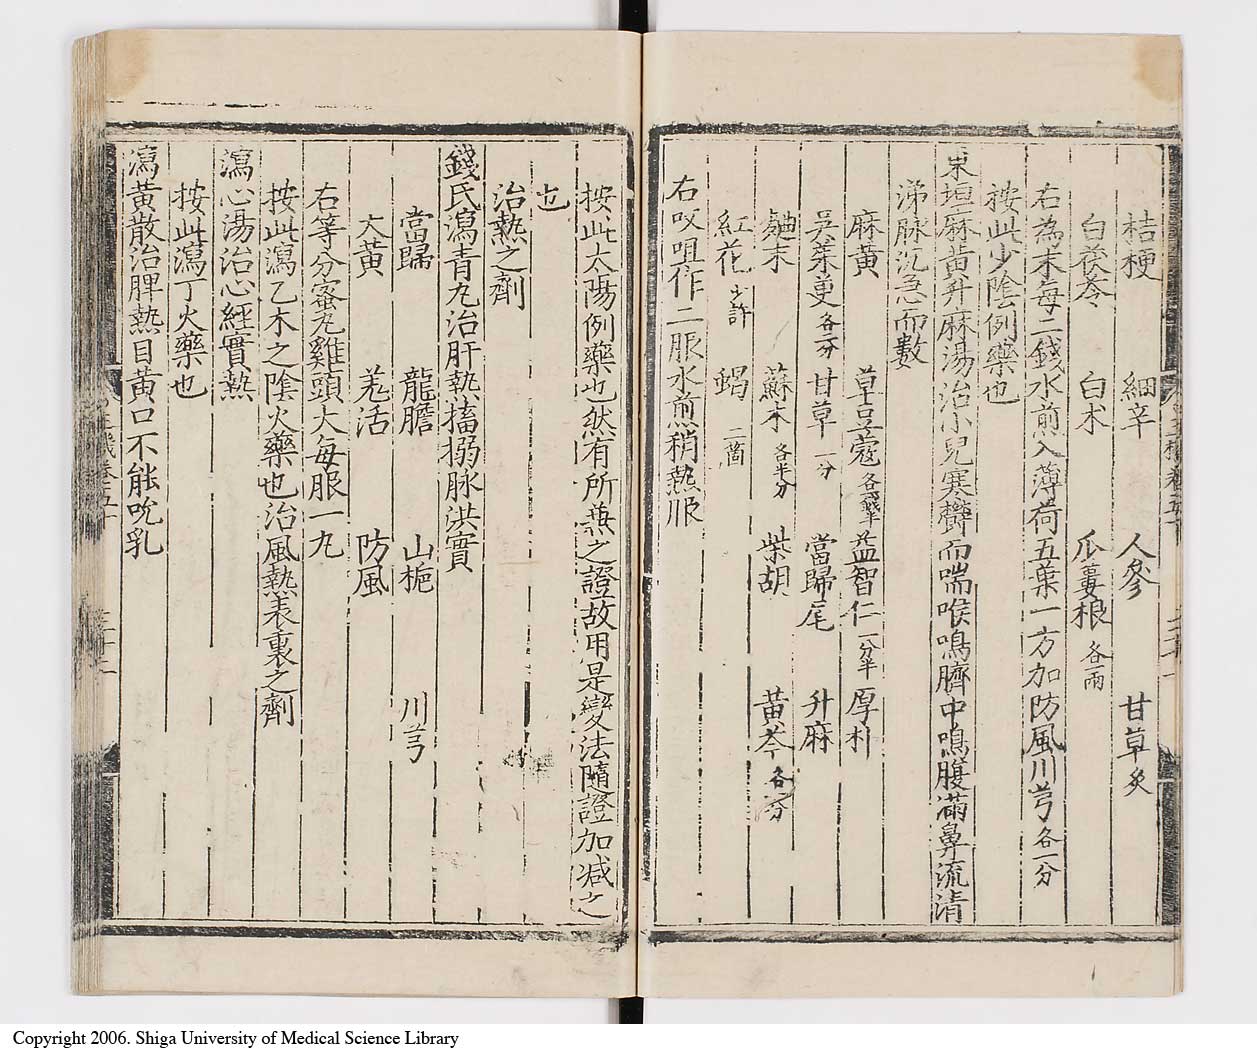 桔梗 細辛 人參 甘草炙
白茯苓 白朮 瓜蔞根各一兩
右為末每二錢水煎入薄荷五葉一方加防風川芎各一分
按此少陰例藥也
東垣麻黃升麻湯治小兒寒欝而喘喉鳴臍中鳴腹滿鼻流清
涕脉沉急而數
麻黃 草豆蔻 益智仁一分半 厚朴
吳茱萸各二分 甘草一分 當歸尾 升麻
麯末 蘇木各半分 柴胡 黃芩各一分
紅花少許 蝎二箇
右㕮咀作二服水煎稍熱服
按此太陽例藥也然有所兼之證故用是變法隨證加减之
也
治熱之劑
錢氏瀉青丸治肝熱搐搦脉洪實
當歸 龍膽 山梔 川芎
大黃 羌活 防風
右等分蜜丸雞頭大每服一丸
按此瀉乙木之陰火藥也治風熱表裏之劑
瀉心湯治心經實熱
按此瀉丁火藥也
瀉黃散治脾熱目黃口不能吮乳
Copyright 2006. Shiga University of Medical Science Library